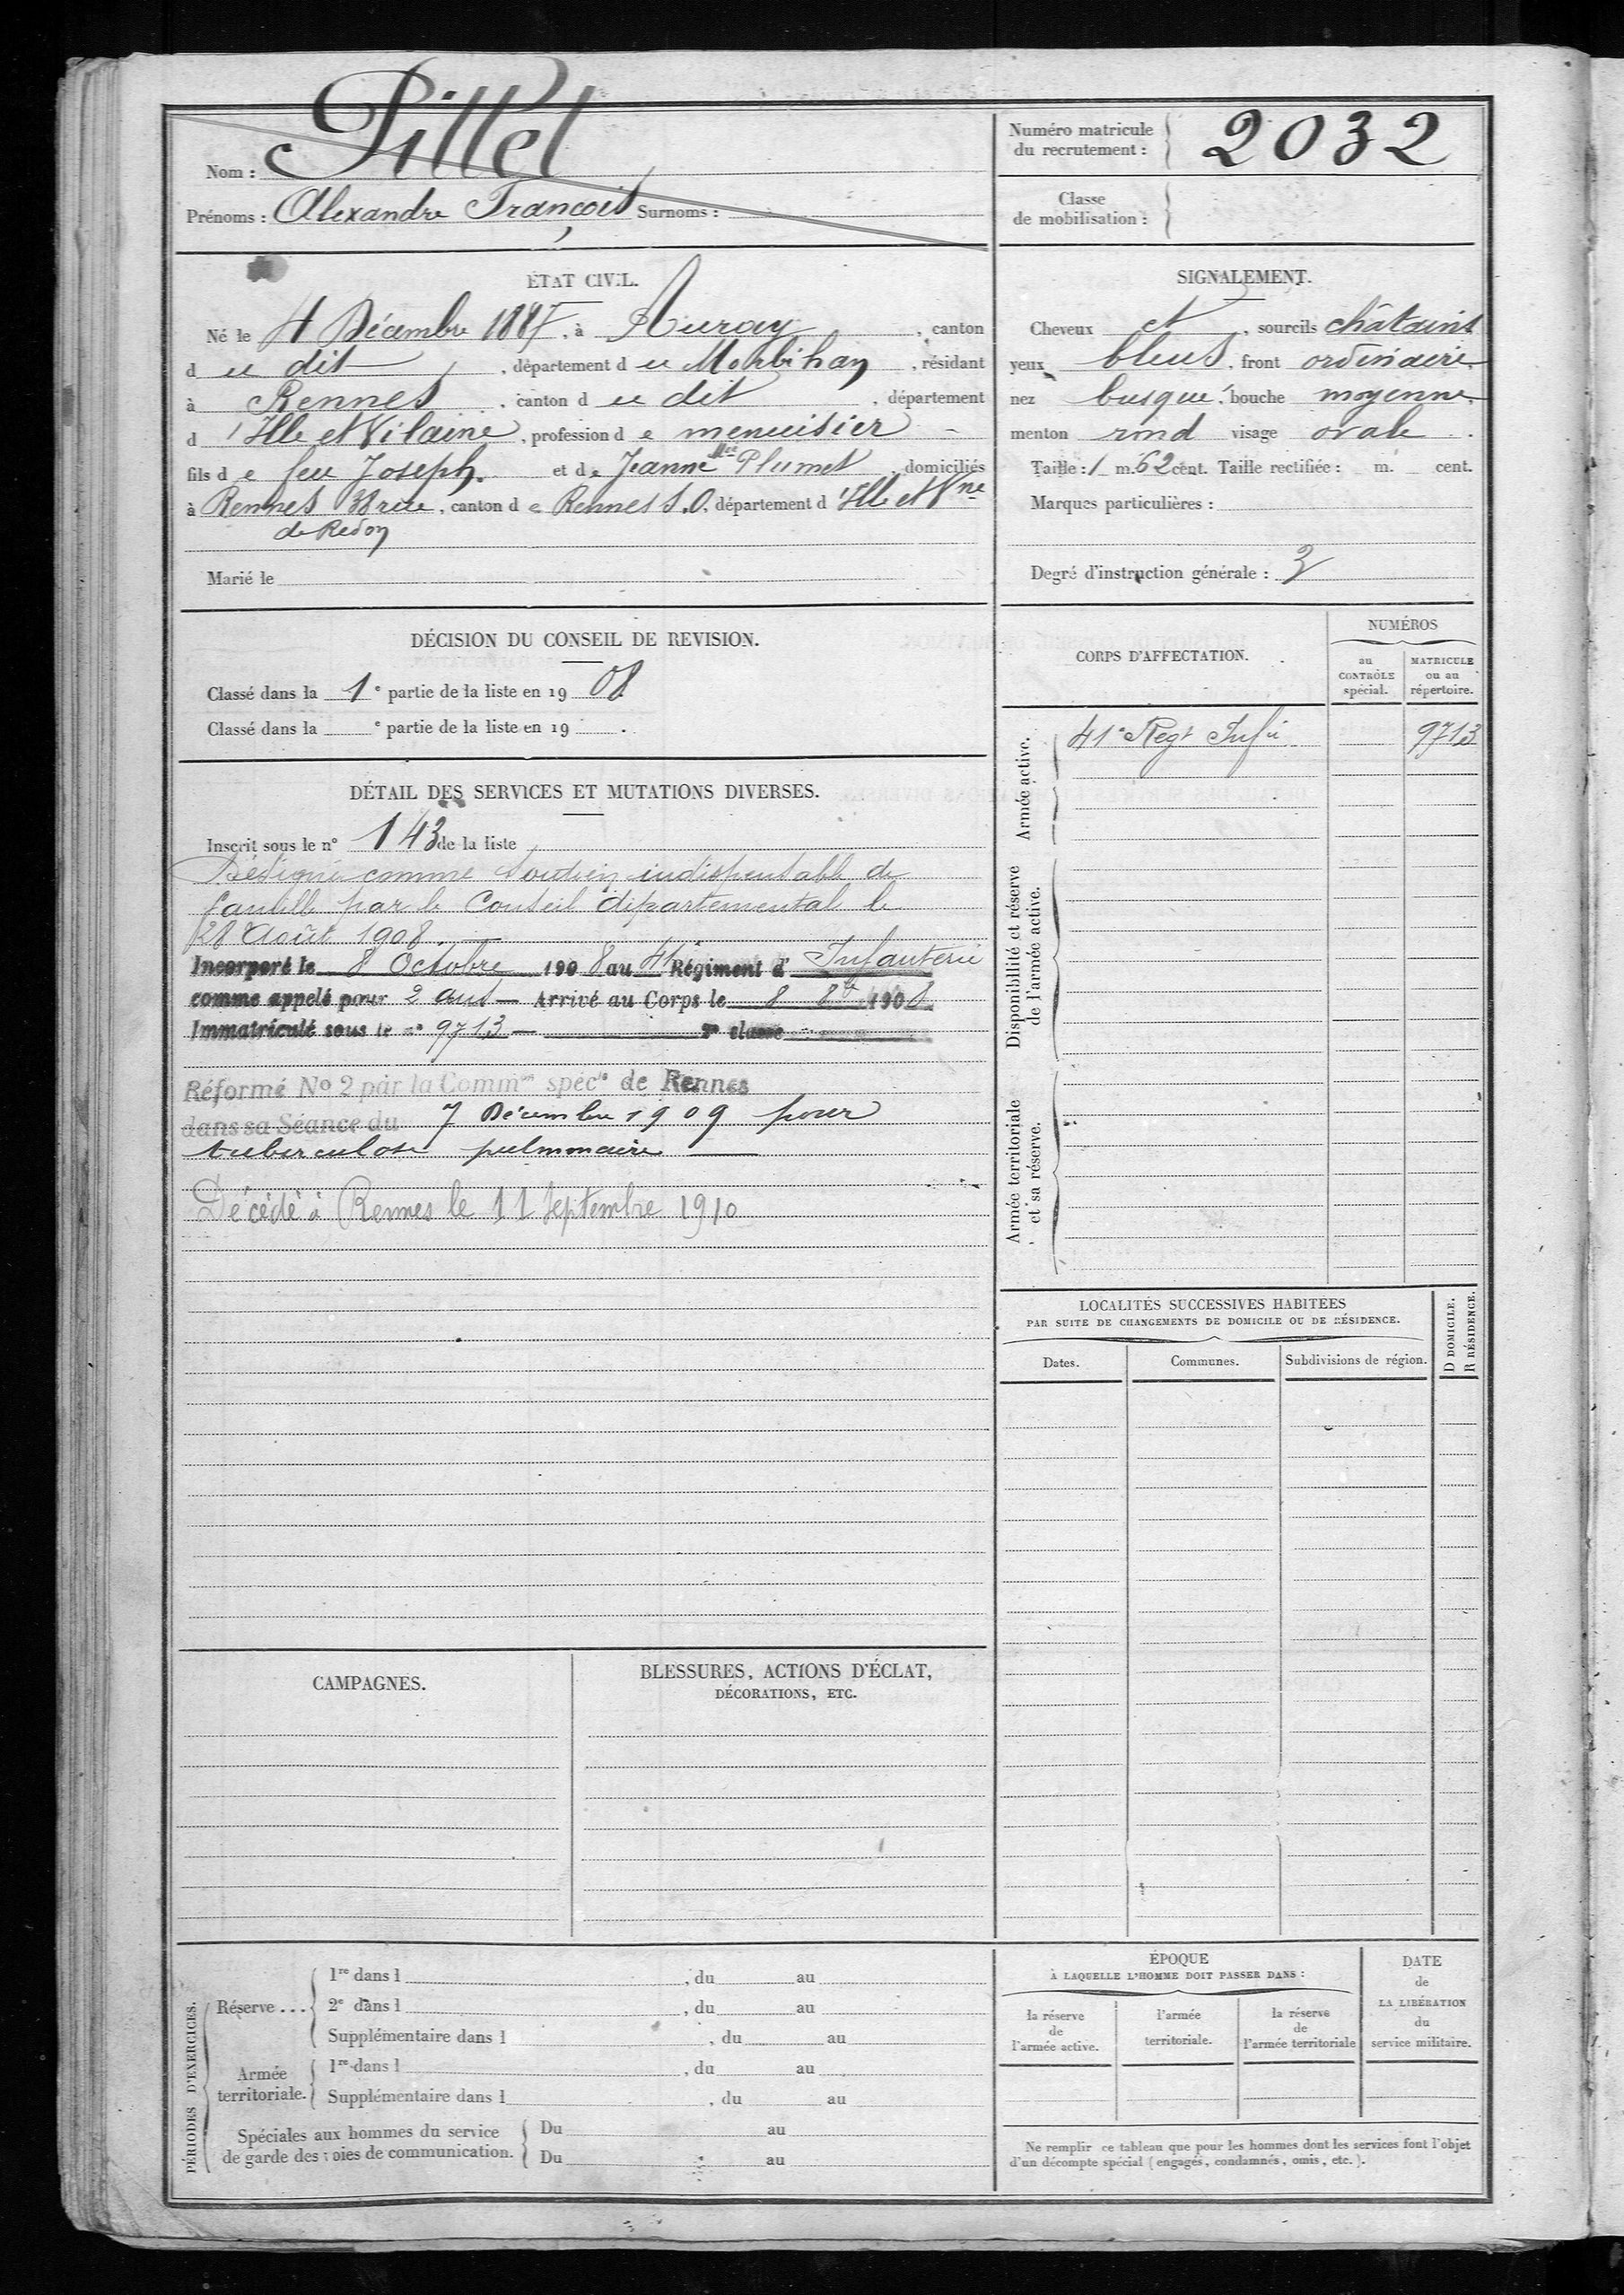 Pillet
Nom :
Prénoms : Alexandre François Surnoms :
Numéro matricule
du recrutement : 2032
Classe
de mobilisation :
ÉTAT CIVIL.
Né le 4 Décembre 1887, à Auray, canton
d u dit, département d u Morbihan, résidant
à Rennes, canton d u dit, département
d 'Ille et Vilaine, profession d e menuisier
fils d e feu Joseph. et d e Jeanne Mie Plumet, domiciliés
à Rennes 38 rue, canton d e Rennes S.O. département d 'Ille et Vne
de Redon
Marié le
SIGNALEMENT.
Cheveux et, sourcils châtains
yeux bleus, front ordinaire,
nez busqué, bouche moyenne,
menton rond visage ovale.
Taille : 1 m. 62 cent. Taille rectifiée : m. cent.
Marques particulières :
Degré d'instruction générale : 3
DÉCISION DU CONSEIL DE REVISION.
Classé dans la 1 e partie de la liste en 19 08
Classé dans la e partie de la liste en 19 .
DÉTAIL DES SERVICES ET MUTATIONS DIVERSES.
Inscrit sous le n° 143 de la liste
Désigné comme soutien indispensable de
famille par le Conseil départemental le
28 Août 1908.
Incorporé le 8 Octobre 1908 au 41 Régiment d' Infanterie
comme appelé pour 2 ans — Arrivé au Corps le 8 8bre 1908
Immatriculé sous le n° 9713 — 2e classe
Réformé No 2 par la Common spéc le de Rennes
dans sa Séance du 7 Décembre 1909 pour
tuberculose pulmonaire —
Décédé à Rennes le 11 Septembre 1910
CORPS D'AFFECTATION.
NUMÉROS
au
CONTRÔLE
spécial.
MATRICULE
ou au
répertoire.
Armée active.
41e Regt Infie 9713
Disponibilité et réserve
de l'armée active.
Armée territoriale
et sa réserve.
LOCALITÉS SUCCESSIVES HABITÉES
PAR SUITE DE CHANGEMENTS DE DOMICILE OU DE RÉSIDENCE.
Dates.
Communes.
Subdivisions de région.
D DOMICILE.
R RÉSIDENCE.
CAMPAGNES.
BLESSURES, ACTIONS D'ÉCLAT,
DÉCORATIONS, ETC.
PÉRIODES D'EXERCICES.
Réserve ...
1re dans l , du au
2e dans l , du au
Supplémentaire dans l , du au
Armée
territoriale.
1re dans l , du au
Supplémentaire dans l , du au
Spéciales aux hommes du service
de garde des voies de communication.
Du au
Du au
ÉPOQUE
À LAQUELLE L'HOMME DOIT PASSER DANS :
la réserve
de
l'armée active.
l'armée
territoriale.
la réserve
de
l'armée territoriale
DATE
de
LA LIBÉRATION
du
service militaire.
Ne remplir ce tableau que pour les hommes dont les services font l'objet
d'un décompte spécial (engagés, condamnés, omis, etc.).